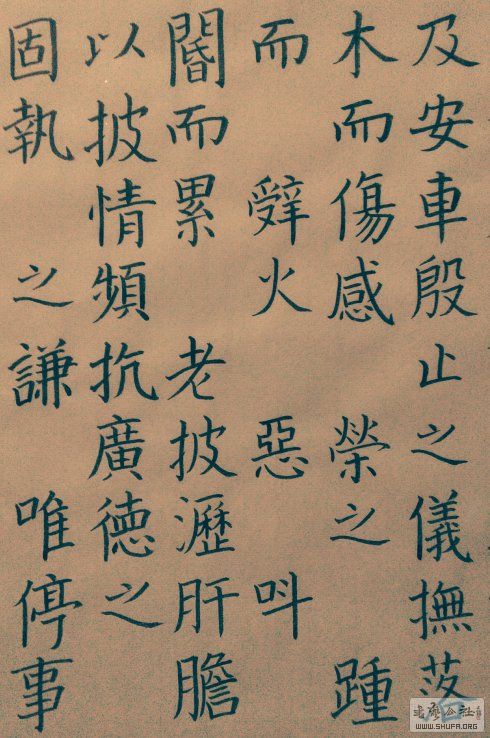 及安車殷止之儀撫落
木而傷感 榮之 踵
而 辤火 惡 呌
閽而累 老披瀝肝膽
以披情頻抗廣徳之
固執 之謙 唯停事
WWW.SHUFA.ORG